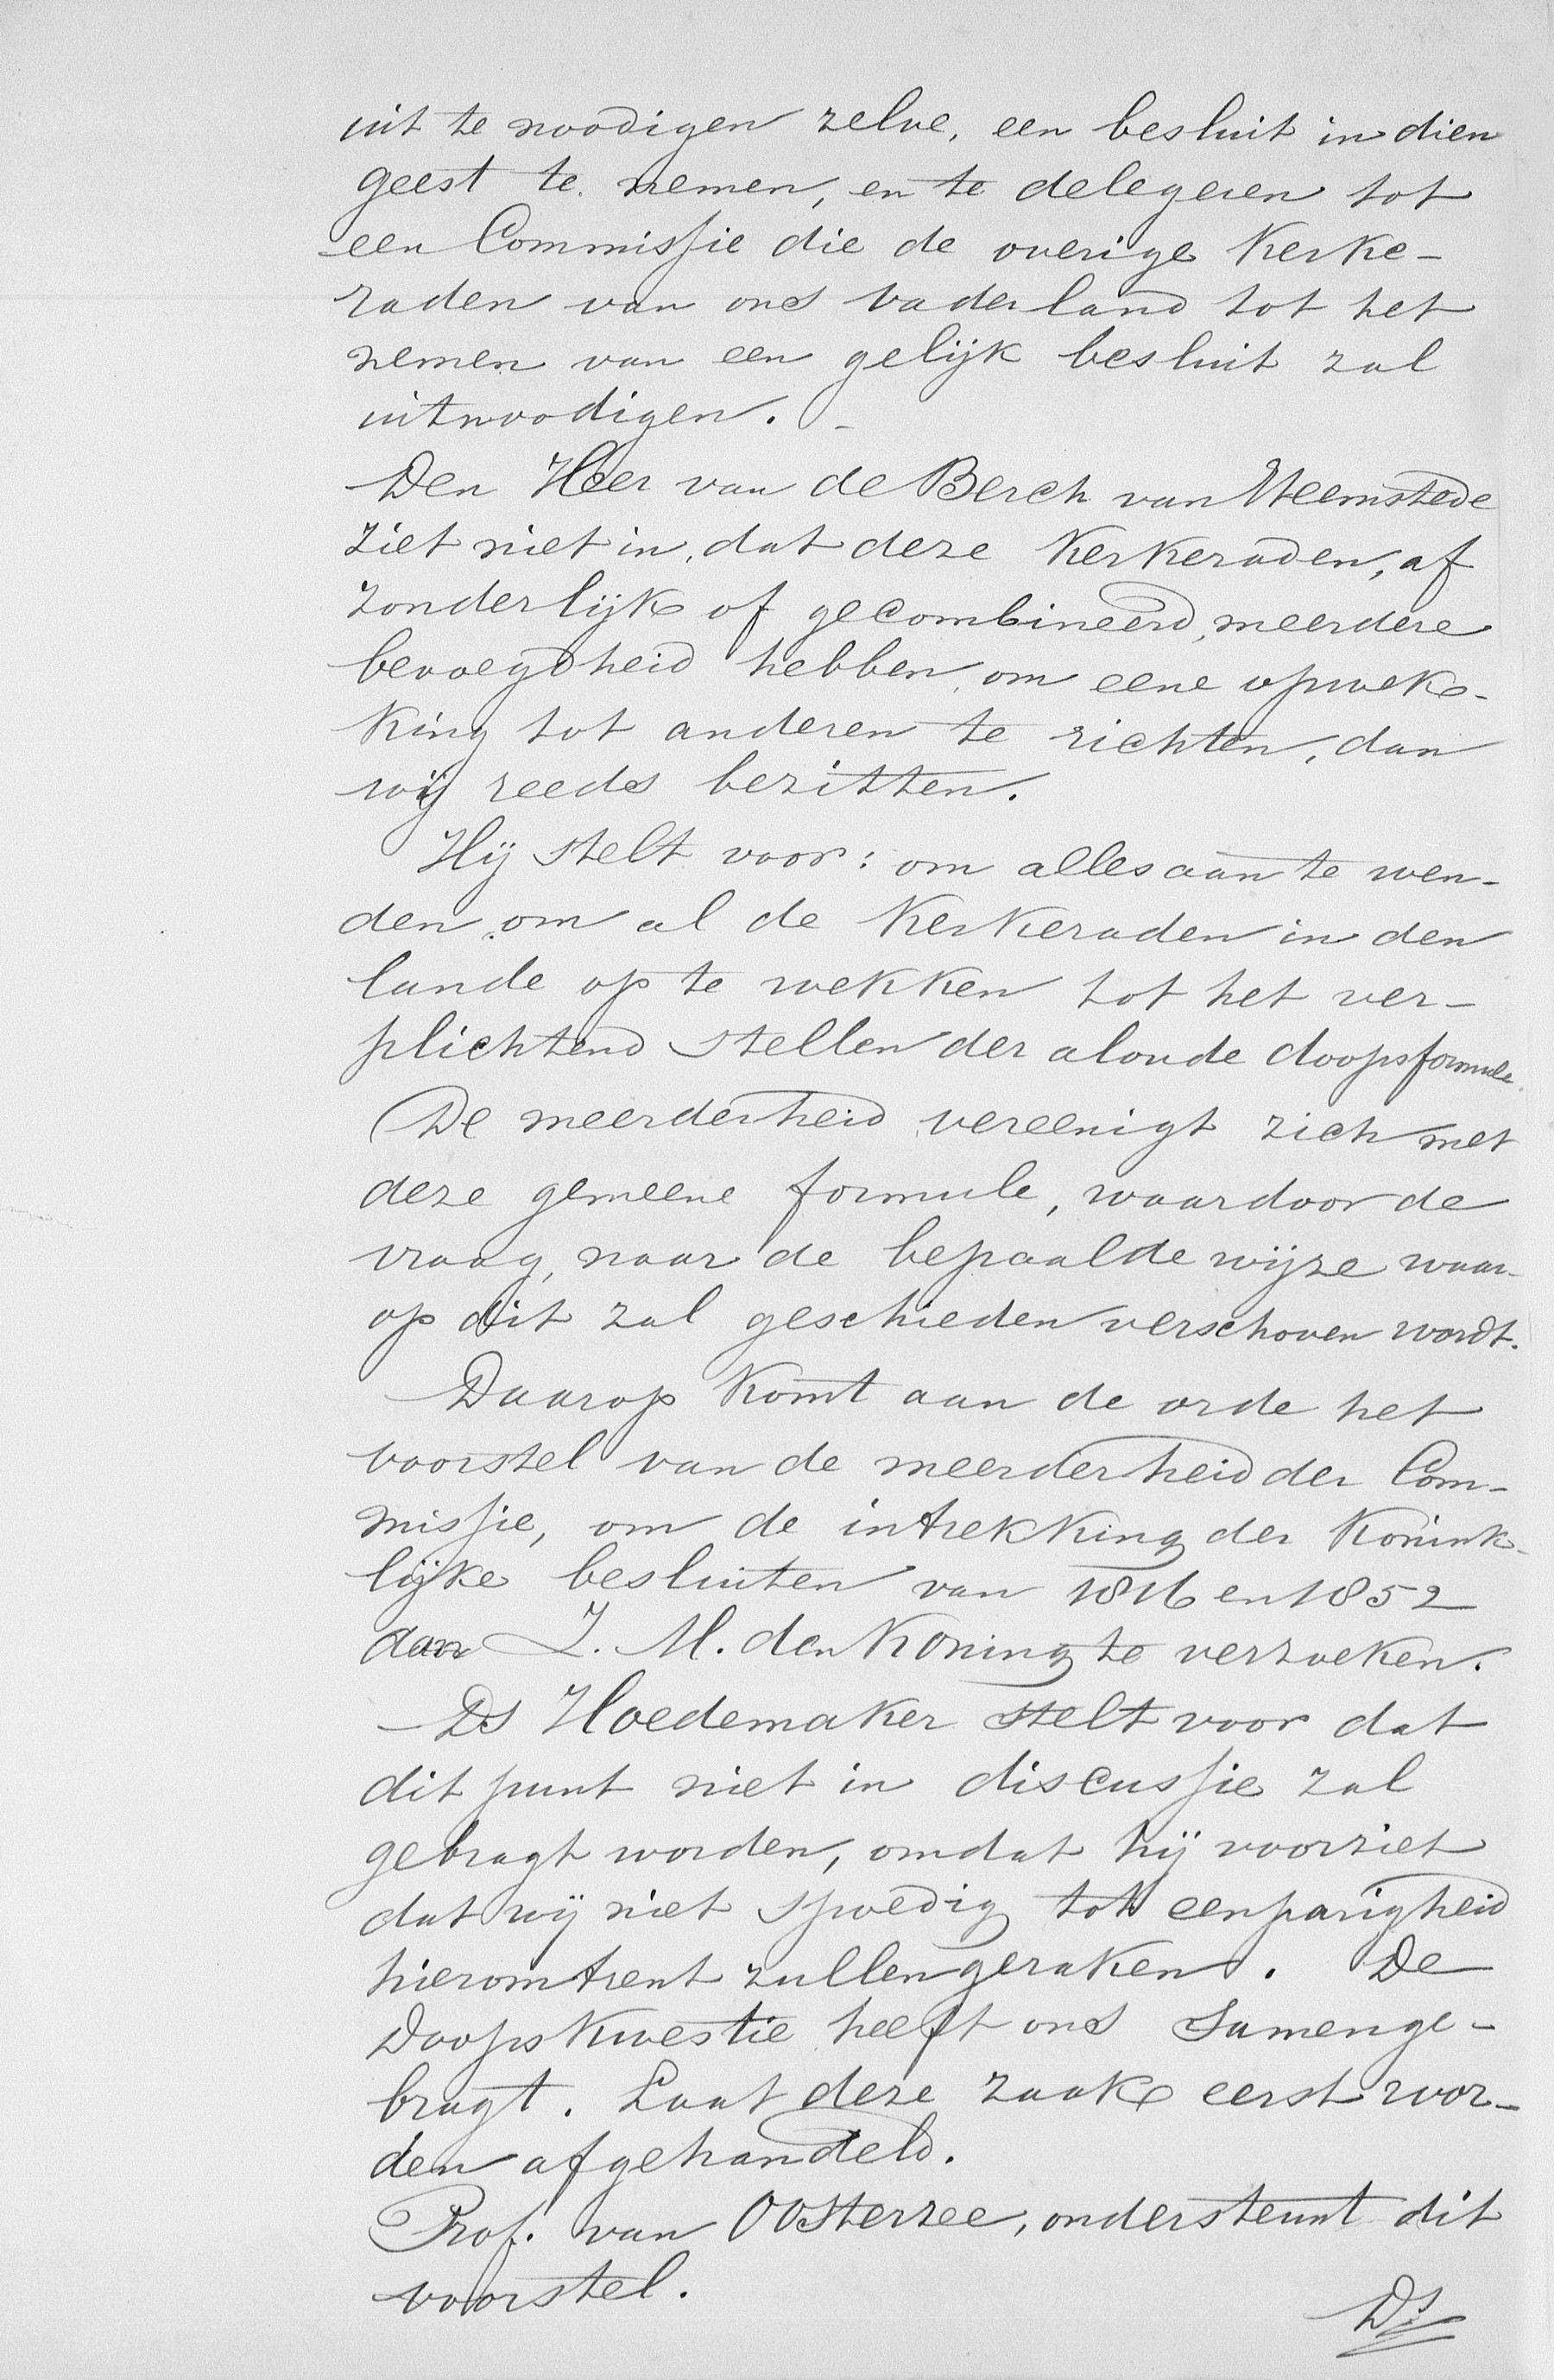 uit te noodigen zelve, een besluit in dien
geest te nemen, en te delegeren tot
een Commissie die de overige Kerke-
raden van ons vaderland tot het
nemen van een gelijk besluit zal
uitnoodigen. -
Den Heer van de Berch van Heemstede
ziet niet in, dat deze Kerkeraden, af
zonderlijk of gecombineerd, meerdere
bevoegdheid hebben, om eene opwek-
king tot anderen te richten, dan
wij reeds bezitten.
Hij stelt voor: om alles aan te wen-
den om al de Kerkeraden in den
lande op te wekken tot het ver-
plichtend stellen der aloude doopsformule.
De meerderheid vereenigt zich met
deze gemeene formule, waardoor de
vraag, naar de bepaalde wijze waar-
op dit zal geschieden verschoven wordt.
Daarop komt aan de orde het
voorstel van de meerderheid der Com-
missie, om de intrekking der Konink-
lijke besluiten van 1816 en 1852
aan Z. M. den Koning te verzoeken.
Ds Hoedemaker stelt voor dat
dit punt niet in discussie zal
gebragt worden, omdat hij voorziet
dat wij niet spoedig tot eenparigheid
hieromtrent zullen geraken. De
Doopskwestie heeft ons samenge-
bragt. Laat deze zaak eerst wor-
den afgehandeld.
Prof. van Oosterzee, ondersteunt dit
voorstel.
Ds